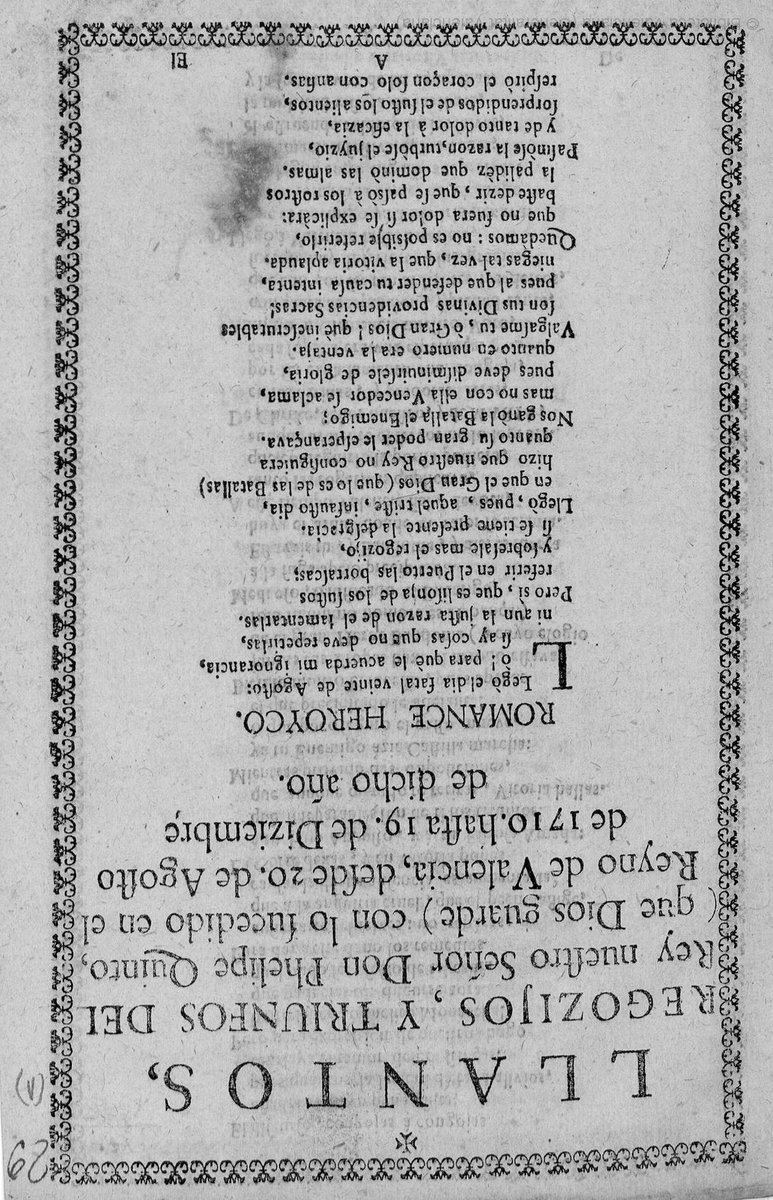 LLANTOS,
REGOZIJOS, Y TRIUNFOS DEL
Rey nuestro Señor Don Phelipe Quinto,
( que Dios guarde ) con lo sucedido en el
Reyno de Valencia, desde 20. de Agosto
de 1710. hasta 19. de Diziembre
de dicho año.
ROMANCE HEROYCO.
LLegò el dia fatal veinte de Agosto:
ò ! para què le acuerda mi ignorancia,
si ay cosas que no deve repetirlas,
ni aun la justa razon de el lamentarlas.
Pero si, que es lisonja de los sustos
referir en el Puerto las borrascas;
y sobresale mas el regozijo,
si se tiene presente la desgracia.
Llegò, pues, aquel triste, infausto dia,
en que el Gran Dios (que lo es de las Batallas)
hizo que nuestro Rey no consiguiera
quanto su gran poder le esperançava.
Nos ganò la Batalla el Enemigo;
mas no con ella Vencedor se aclama,
pues deve disminuirsele de gloria,
quanto en numero era la ventaja.
Valgasme tu, ò Gran Dios ! què inescrutables
son tus Divinas providencias Sacras!
pues al que defender tu causa intenta,
niegas tal vez, que la vitoria aplauda.
Quedamos : no es possible referirlo,
que no fuera dolor si se explicàra:
baste dezir, que se passò à los rostros
la palidèz que dominò las almas.
Pasmòse la razon, turbòse el juyzio,
y de tanto dolor à la eficazia,
sorprendidos de el susto los alientos,
respirò el coraçon solo con ansias.
A El
62
(v)